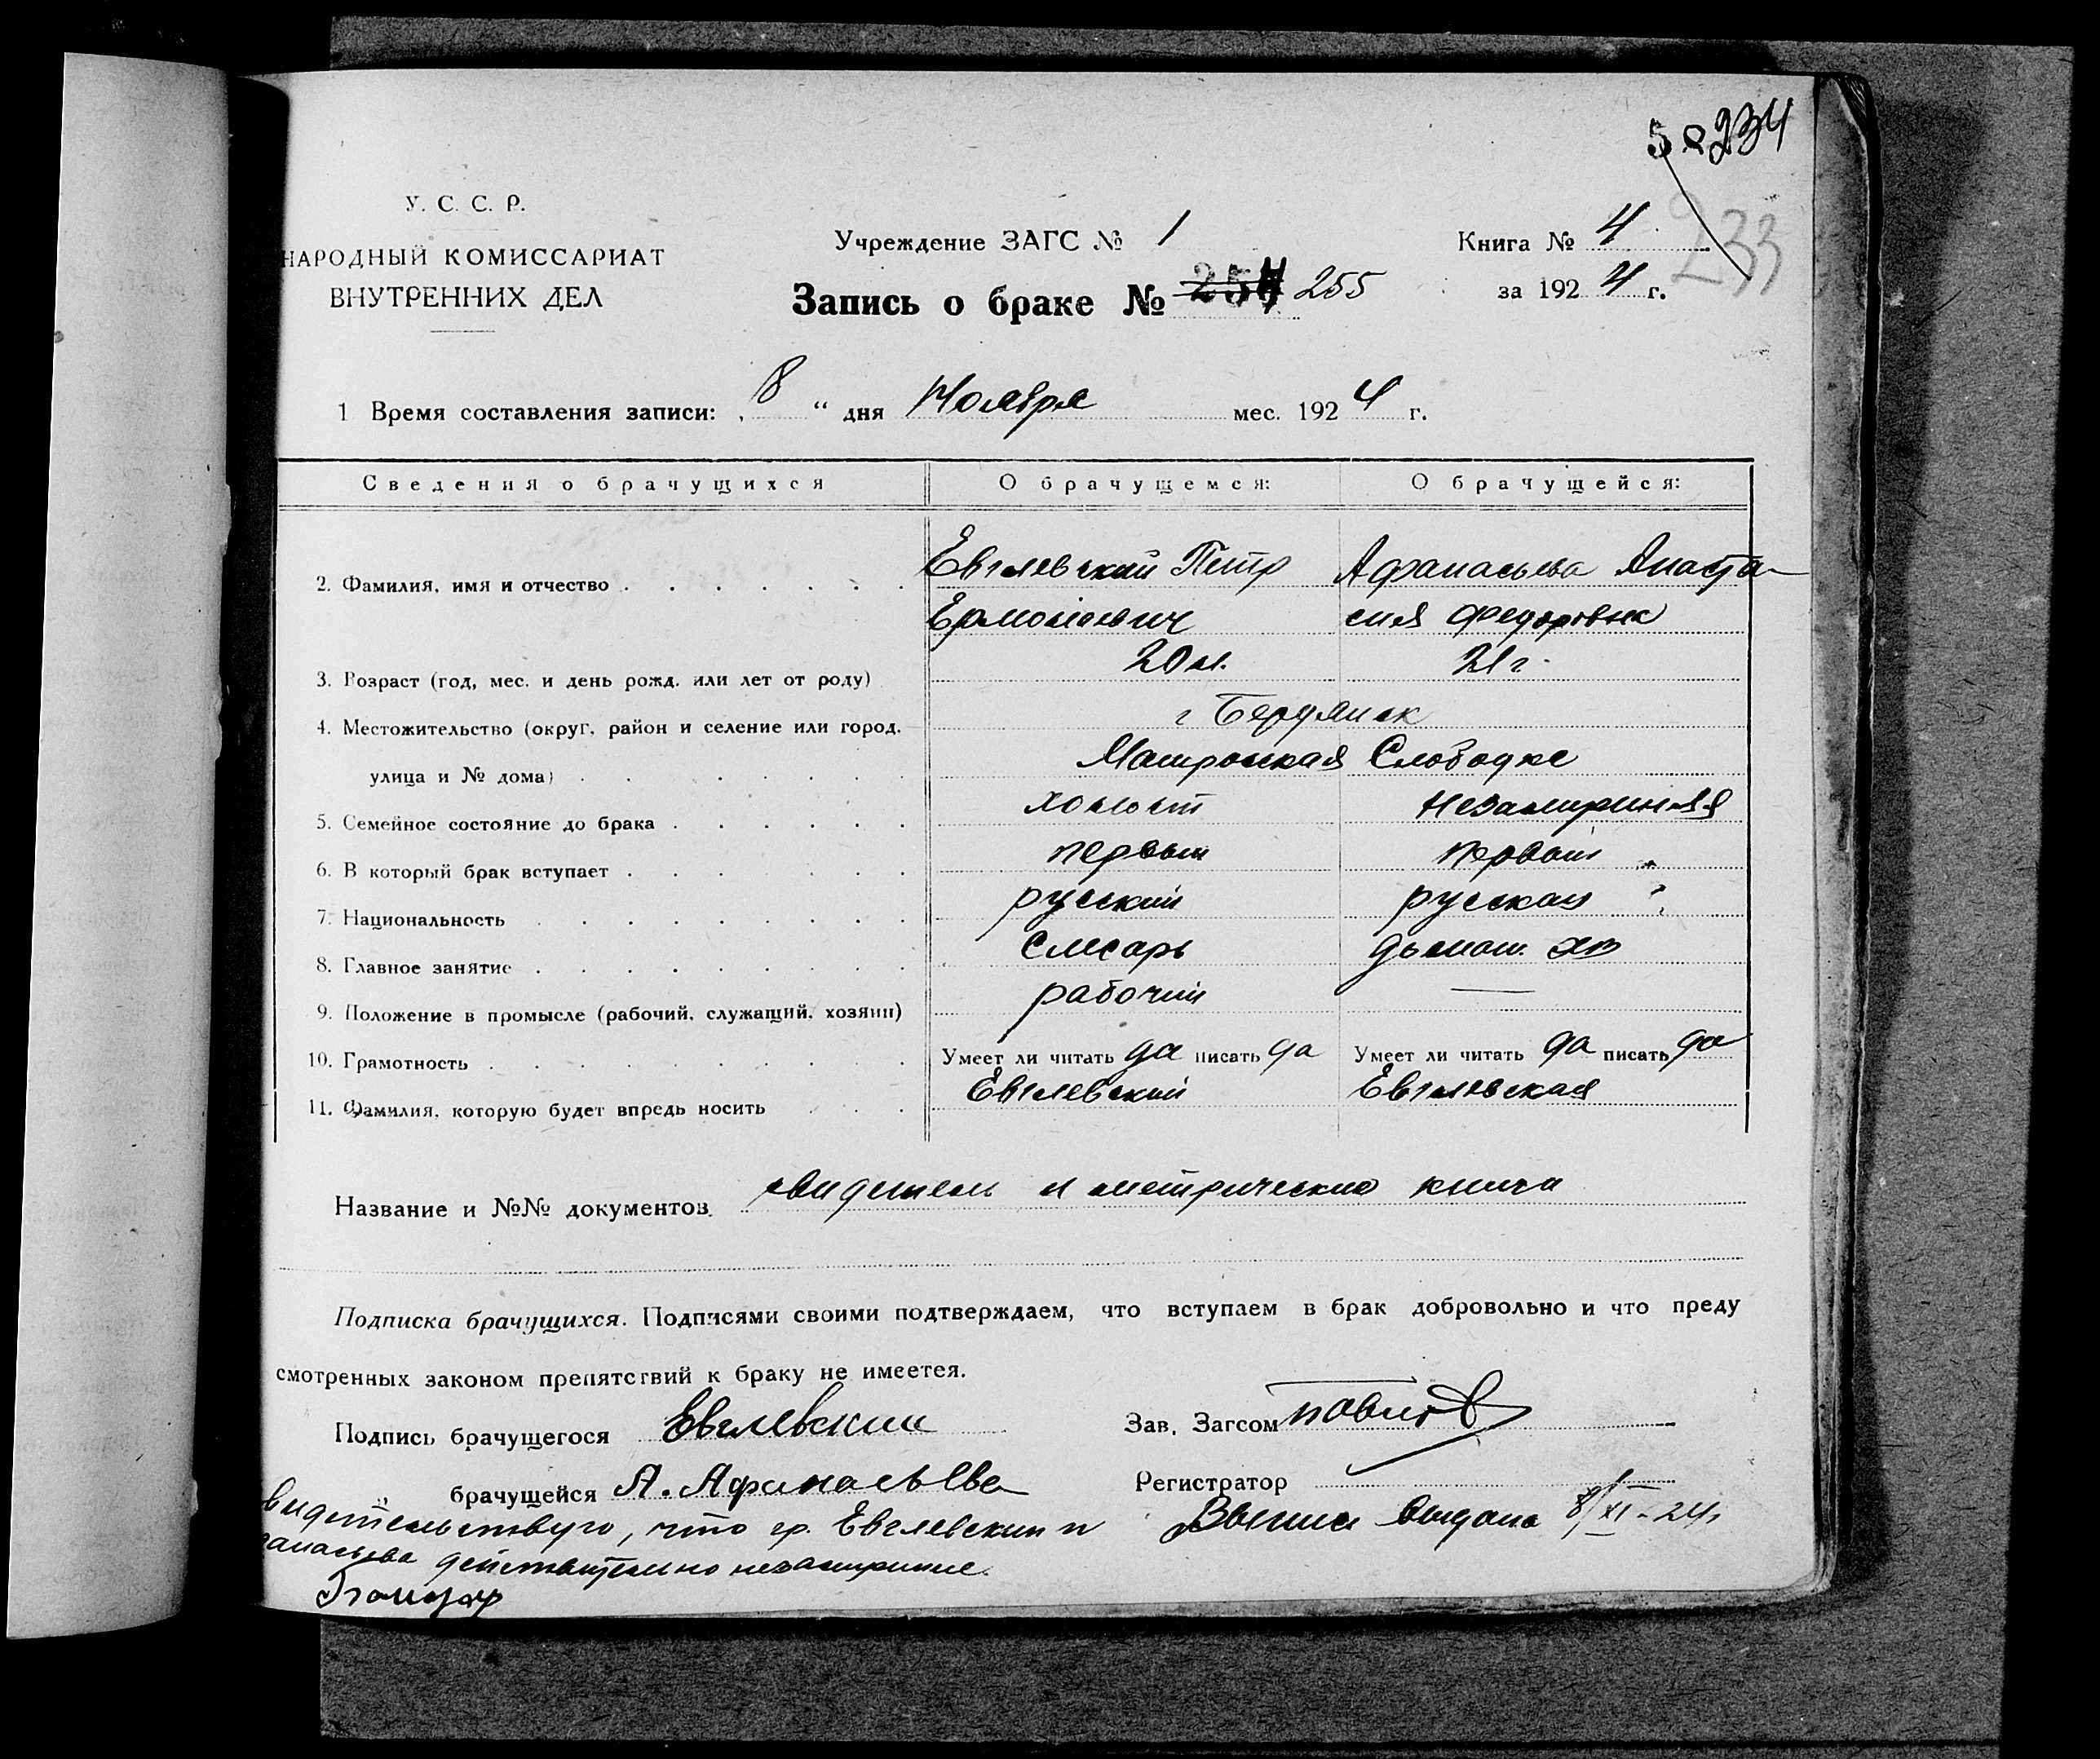 5 234
233
У. С. С. Р.
НАРОДНЫЙ КОМИССАРИАТ
ВНУТРЕННИХ ДЕЛ
Учреждение ЗАГС № 1
Запись о браке № 254 255
Книга № 4
за 1924 г.
1 Время составления записи: „8“ дня Ноября мес. 1924 г.
Сведения о брачущихся О брачущемся: О брачущейся:
2. Фамилия, имя и отчество Евглевский Петр Афанасьева Анаста-
Ермолаевич сия Федоровна
3. Возраст (год, мес. и день рожд. или лет от роду) 20 л. 21 г.
4. Местожительство (округ, район и селение или город, г Бердянск
улица и № дома) Матросская Слободка
5. Семейное состояние до брака холост незамужняя
6. В который брак вступает первый первый „
7. Национальность русский русская
8. Главное занятие Слесарь домаш. хоз
9. Положение в промысле (рабочий, служащий, хозяин) рабочий —
10. Грамотность Умеет ли читать да писать да Умеет ли читать да писать да
11. Фамилия, которую будет впредь носить Евглевский Евглевская
Название и №№ документов свидетель и метрическая книга
Подписка брачущихся. Подписями своими подтверждаем, что вступаем в брак добровольно и что преду
смотренных законом препятствий к браку не имеется.
Подпись брачущегося Евглевский
Зав. Загсом Павлов
„ брачущейся А. Афанасьева
Регистратор
видетельствую, что гр. Евглевский и
анасьева действительно
Выпись выдана 8/XI-24г